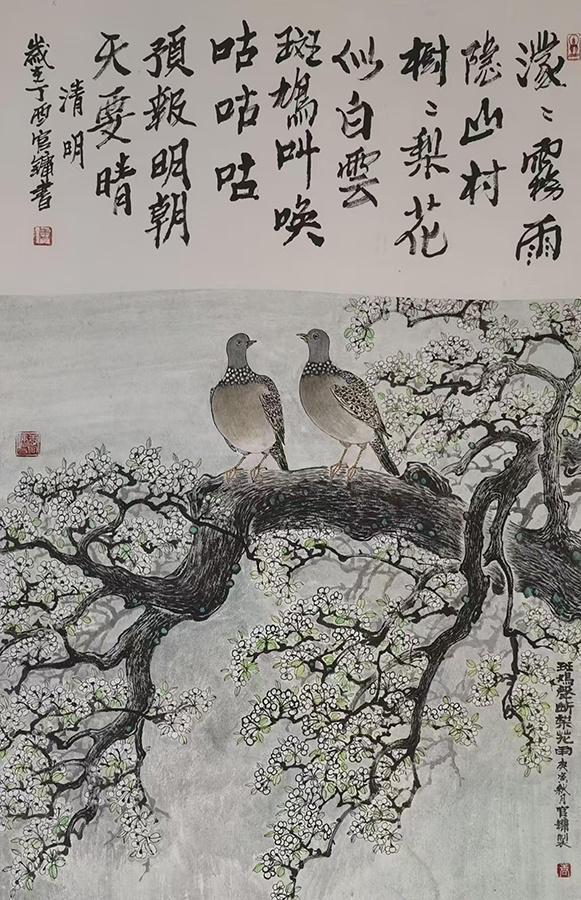 濛〻霧雨
隱山村
樹〻梨花
似白雲
斑鳩叫喚
咕咕咕
預報明朝
天要晴
清明
歲在丁酉官鏞書
斑鳩聲斷梨花雨
庚寅秋月官鏞製